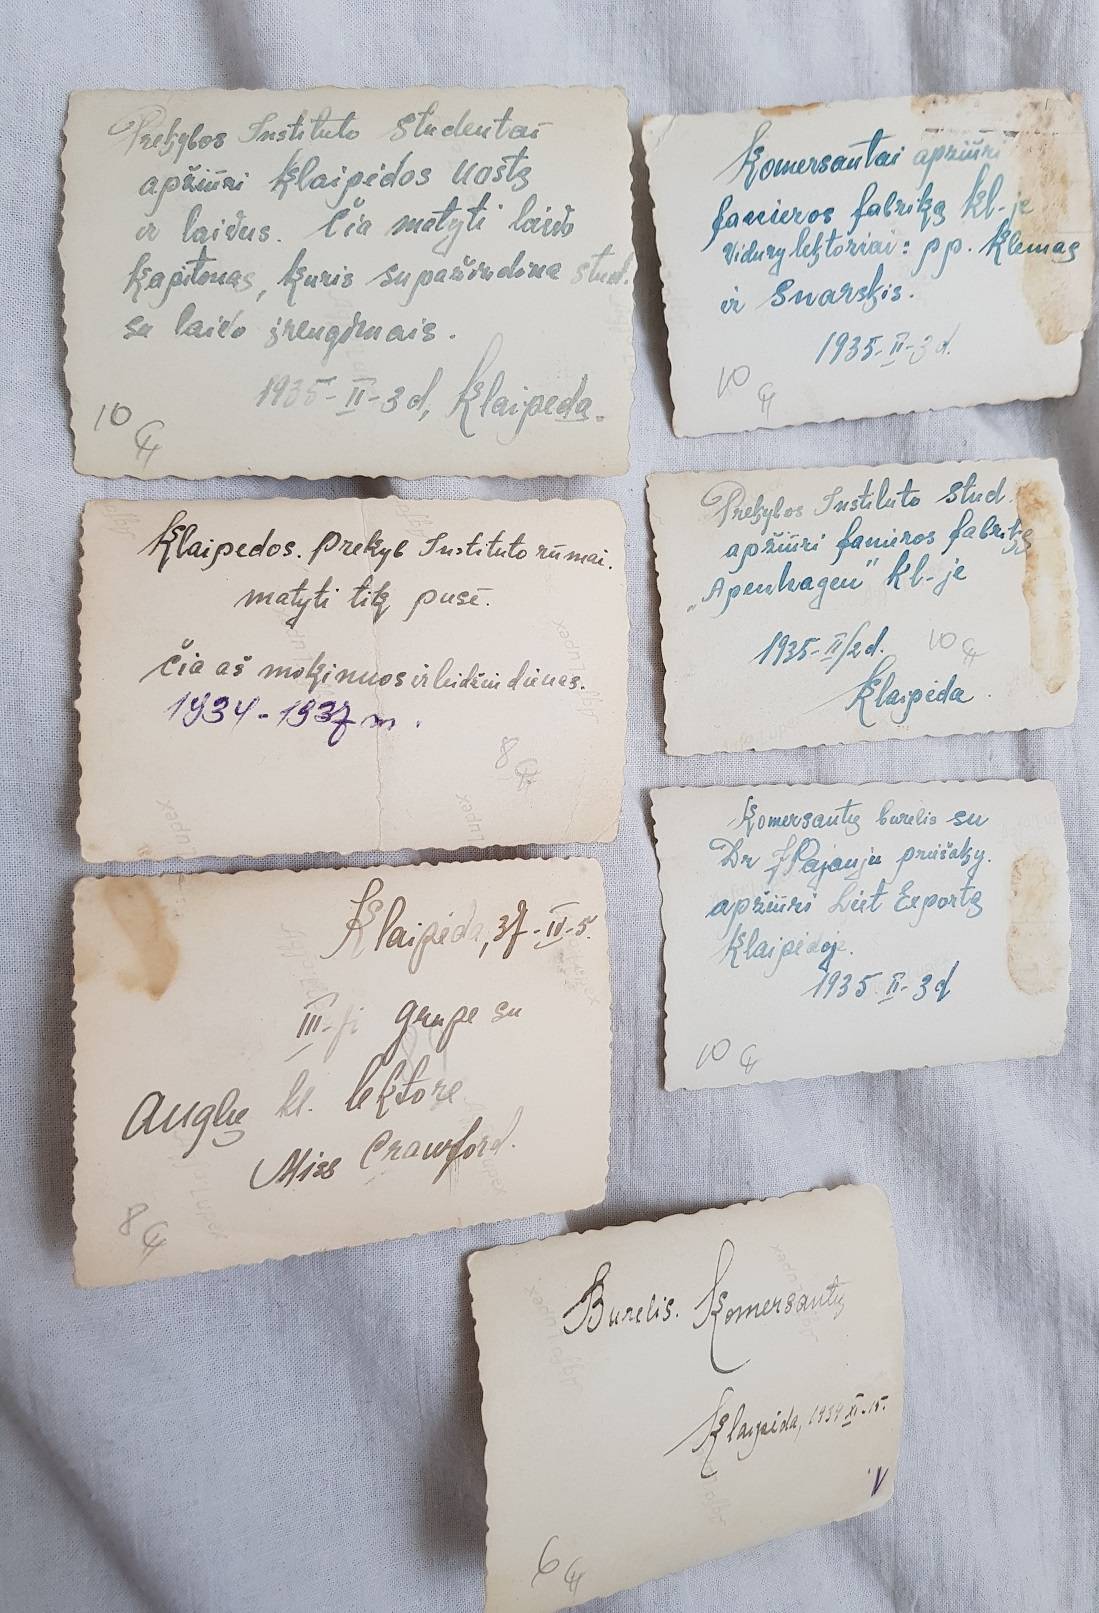 Prekybos Instituto Studentai
apžiūri Klaipėdos Uostą
ir laivus. Čia matyti laivo
kapitonas, kuris supažindina stud.
su laivo įrengimais.
1935-II-3d, Klaipėda.
10
Komersantai apžiūri
fanieros fabriką Kl-je
Vidury lektoriai: pp. Klemas
ir Snarskis.
1935-II-3d.
10
Klaipedos. Prekyb Instituto rūmai.
matyti tik pusė.
Čia aš mokinuos ir leidžiu dienas.
1934-1937 m.
8
Prekybos Instituto Stud.
apžiūri fanieros fabriką
„Apenhagen" Kl-je
1935-II/2d.
10
Klaipėda.
Komersantų burelis su
Dr J Pajauju priešaky.
apžiūri Liet Exportą
Klaipėdoje.
1935-II-3d
10
Klaipėda, 37-IV-5.
III-ji grupe su
Anglų kl. lektore
Miss Crawford.
8
Agfa Lupex
Burelis. Komersantų
Klaipėda, 1934-XI-15.
V
6